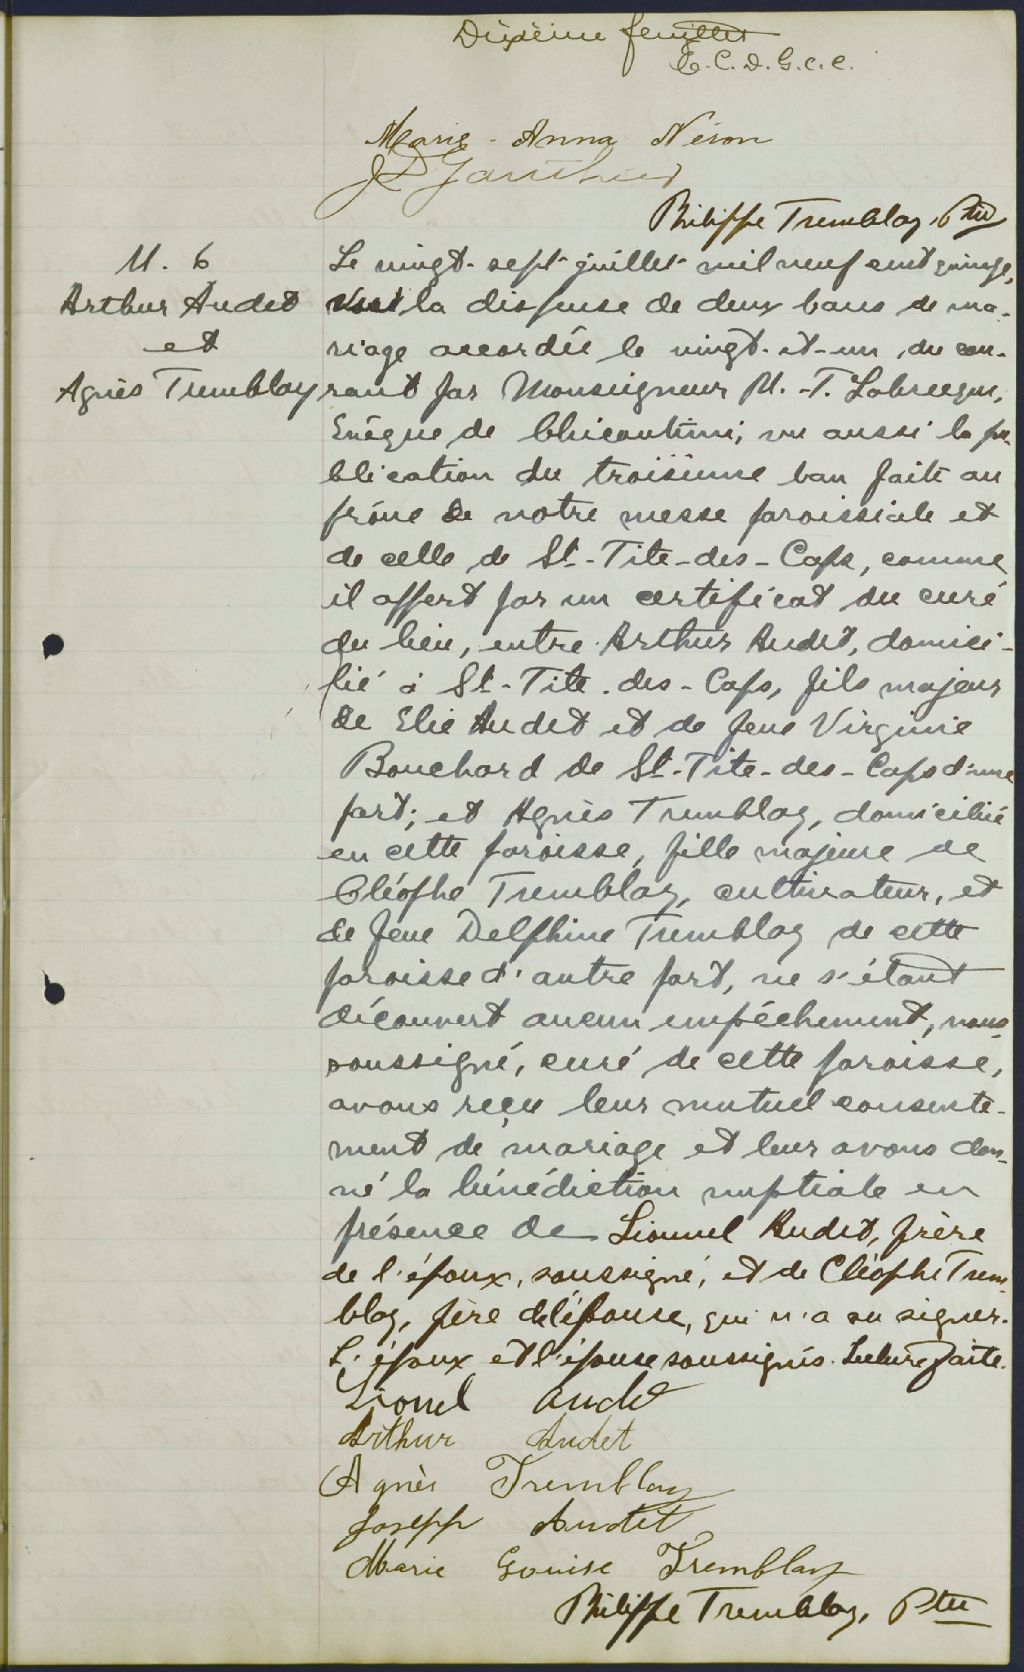 Dixième feuillet
T.C.D.G.c.c.
Marie-Anna Néron
J D Gauthier
Philippe Tremblay, Ptre
M. 6
Arthur Audet
et
Agnès Tremblay
Le vingt-sept juillet mil neuf cent quinze,
vu la dispense de deux bans de ma-
riage accordée le vingt-et-un du cou-
rant par Monseigneur M.-T. Labrecque,
Evêque de Chicoutimi; vu aussi la pu-
blication du troisième ban faite au
prône de notre messe paroissiale et
de celle de St-Tite-des-Caps, comme
il appert par un certificat du curé
du lieu, entre Arthur Audet, domici-
lié à St-Tite-des-Caps, fils majeur
de Elie Audet et de feue Virginie
Bouchard de St-Tite-des-Caps d'une
part; et Agnès Tremblay, domiciliée
en cette paroisse, fille majeure de
Cléophe Tremblay, cultivateur, et
de feue Delphine Tremblay de cette
paroisse d'autre part, ne s'étant
découvert aucun empêchement, nous
soussigné, curé de cette paroisse,
avons reçu leur mutuel consente-
ment de mariage et leur avons don-
né la bénédiction nuptiale en
présence de Lionnel Audet, frère
de l'époux, soussigné, et de Cléophe Trem-
blay, père de l'épouse, qui n'a su signer.
L'époux et l'épouse soussignés. Lecture faite.
Lionel Audet
Arthur Audet
Agnès Tremblay
Joseph Audet
Marie Louise Tremblay
Philippe Tremblay, Ptre